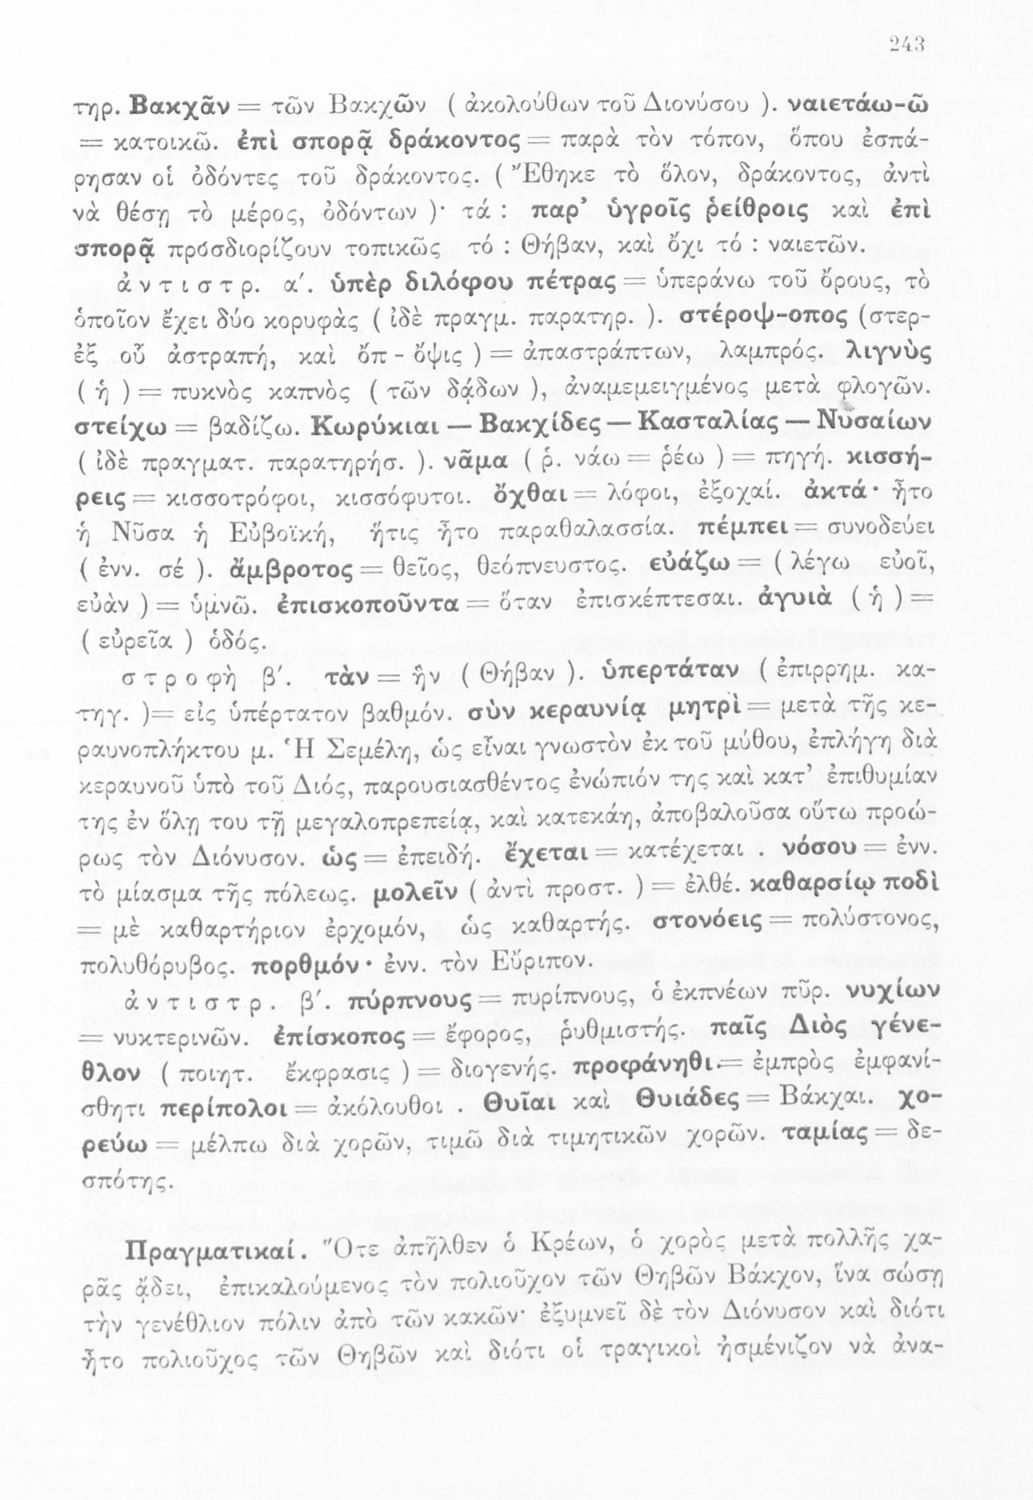 243
τηρ. Βακχᾶν = τῶν Βακχῶν ( ἀκολούθων τοῦ Διονύσου ). ναιετάω-ῶ
= κατοικῶ. ἐπὶ σπορᾷ δράκοντος = παρὰ τὸν τόπον, ὅπου ἐσπά-
ρησαν οἱ ὀδόντες τοῦ δράκοντος. ( Ἔθηκε τὸ ὅλον, δράκοντος, ἀντὶ
νὰ θέσῃ τὸ μέρος, ὀδόντων )· τά : παρ’ ὑγροῖς ῥείθροις καὶ ἐπὶ
σπορᾷ προσδιορίζουν τοπικῶς τό : Θήβαν, καὶ ὄχι τό : ναιετῶν.
ἀντιστρ. α΄. ὑπὲρ διλόφου πέτρας = ὑπεράνω τοῦ ὄρους, τὸ
ὁποῖον ἔχει δύο κορυφὰς ( ἰδὲ πραγμ. παρατηρ. ). στέροψ-οπος (στερ-
ἐξ οὗ ἀστραπή, καὶ ὀπ - ὄψις ) = ἀπαστράπτων, λαμπρός. λιγνὺς
( ἡ ) = πυκνὸς καπνὸς ( τῶν δᾴδων ), ἀναμεμειγμένος μετὰ φλογῶν.
στείχω = βαδίζω. Κωρύκιαι — Βακχίδες — Κασταλίας — Νυσαίων
( ἰδὲ πραγματ. παρατηρήσ. ). νᾶμα ( ῥ. νάω = ῥέω ) = πηγή. κισσή-
ρεις = κισσοτρόφοι, κισσόφυτοι. ὄχθαι = λόφοι, ἐξοχαί. ἀκτά· ἦτο
ἡ Νῦσα ἡ Εὐβοϊκή, ἥτις ἦτο παραθαλασσία. πέμπει = συνοδεύει
( ἐνν. σέ ). ἄμβροτος = θεῖος, θεόπνευστος. εὐάζω = ( λέγω εὐοῖ,
εὐὰν ) = ὑμνῶ. ἐπισκοποῦντα = ὅταν ἐπισκέπτεσαι. ἀγυιὰ ( ἡ ) =
( εὐρεῖα ) ὁδός.
στροφὴ β΄. τὰν = ἣν ( Θήβαν ). ὑπερτάταν ( ἐπιρρημ. κα-
τηγ. )= εἰς ὑπέρτατον βαθμόν. σὺν κεραυνίᾳ μητρὶ = μετὰ τῆς κε-
ραυνοπλήκτου μ. Ἡ Σεμέλη, ὡς εἶναι γνωστὸν ἐκ τοῦ μύθου, ἐπλήγη διὰ
κεραυνοῦ ὑπὸ τοῦ Διός, παρουσιασθέντος ἐνώπιόν της καὶ κατ’ ἐπιθυμίαν
της ἐν ὅλῃ του τῇ μεγαλοπρεπείᾳ, καὶ κατεκάη, ἀποβαλοῦσα οὕτω προώ-
ρως τὸν Διόνυσον. ὡς = ἐπειδή. ἔχεται = κατέχεται . νόσου = ἐνν.
τὸ μίασμα τῆς πόλεως. μολεῖν ( ἀντὶ προστ. ) = ἐλθέ. καθαρσίῳ ποδὶ
= μὲ καθαρτήριον ἐρχομόν, ὡς καθαρτής. στονόεις = πολύστονος,
πολυθόρυβος. πορθμόν· ἐνν. τὸν Εὔριπον.
ἀντιστρ. β΄. πύρπνους = πυρίπνους, ὁ ἐκπνέων πῦρ. νυχίων
= νυκτερινῶν. ἐπίσκοπος = ἔφορος, ῥυθμιστής. παῖς Διὸς γένε-
θλον ( ποιητ. ἔκφρασις ) = διογενής. προφάνηθι = ἐμπρὸς ἐμφανί-
σθητι περίπολοι = ἀκόλουθοι . Θυῖαι καὶ Θυιάδες = Βάκχαι. χο-
ρεύω = μέλπω διὰ χορῶν, τιμῶ διὰ τιμητικῶν χορῶν. ταμίας = δε-
σπότης.
Πραγματικαί. Ὅτε ἀπῆλθεν ὁ Κρέων, ὁ χορὸς μετὰ πολλῆς χα-
ρᾶς ᾄδει, ἐπικαλούμενος τὸν πολιοῦχον τῶν Θηβῶν Βάκχον, ἵνα σώσῃ
τὴν γενέθλιον πόλιν ἀπὸ τῶν κακῶν· ἐξυμνεῖ δὲ τὸν Διόνυσον καὶ διότι
ἦτο πολιοῦχος τῶν Θηβῶν καὶ διότι οἱ τραγικοὶ ἠσμένιζον νὰ ἀνα-